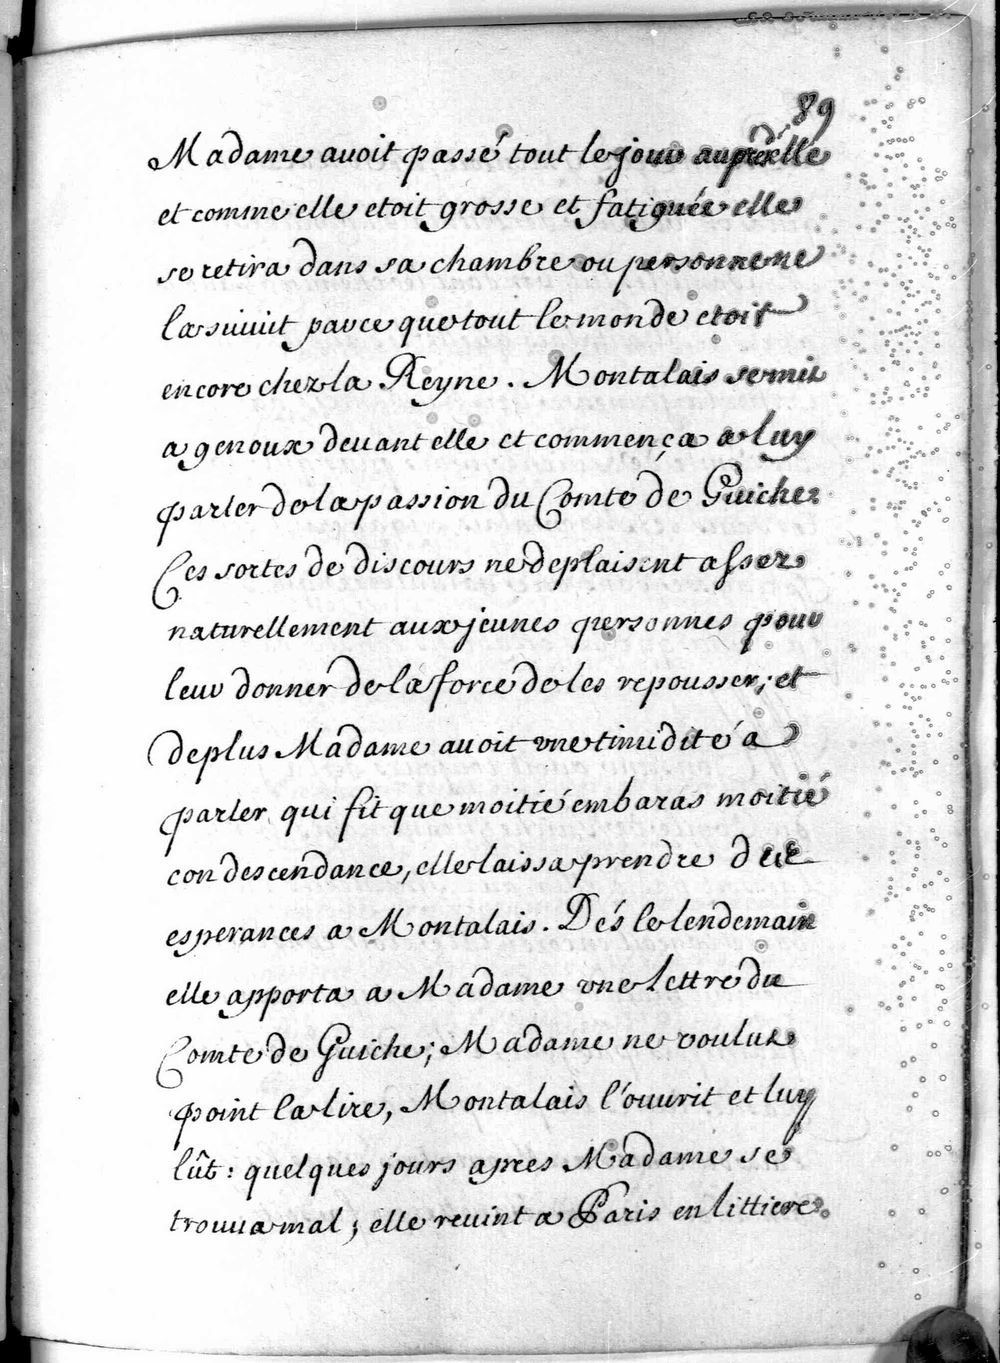 89
Madame avoit passé tout le jour auprés d'elle
et comme elle etoit grosse et fatiguée elle
se retira dans sa chambre ou personne ne
la suiuit parce que tout le monde etoit
encore chez la Reyne. Montalais se mit
a genoux deuant elle et commença a luy
parler de la passion du Comte de Guiche.
Ces sortes de discours ne deplaisent assez
naturellement aux jeunes personnes pour
leur donner de la force de les repousser; et
de plus Madame auoit vne timidité a
parler qui fit que moitié embaras moitié
condescendance, elle laissa prendre des
esperances a Montalais. Dés le lendemain
elle apporta a Madame vne lettre du
Comte de Guiche; Madame ne voulut
point la lire, Montalais l'ouurit et luy
lût: quelques jours apres Madame se
trouua mal; elle reuint a Paris en littiere